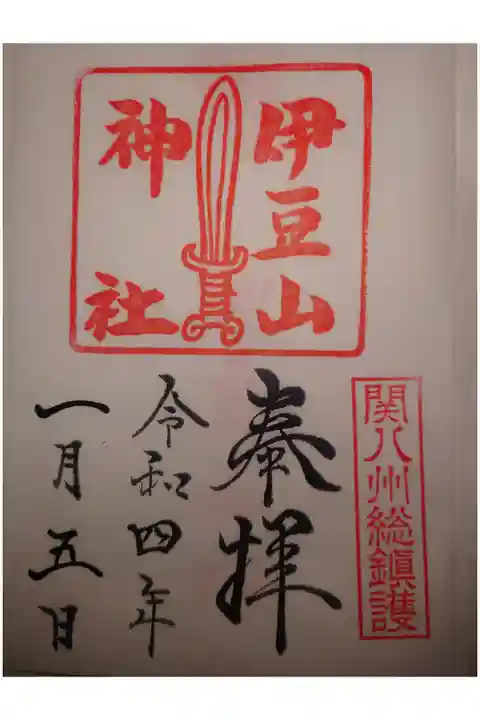 伊豆山
神社
関八州総鎮護
奉拝
令和四年
一月五日